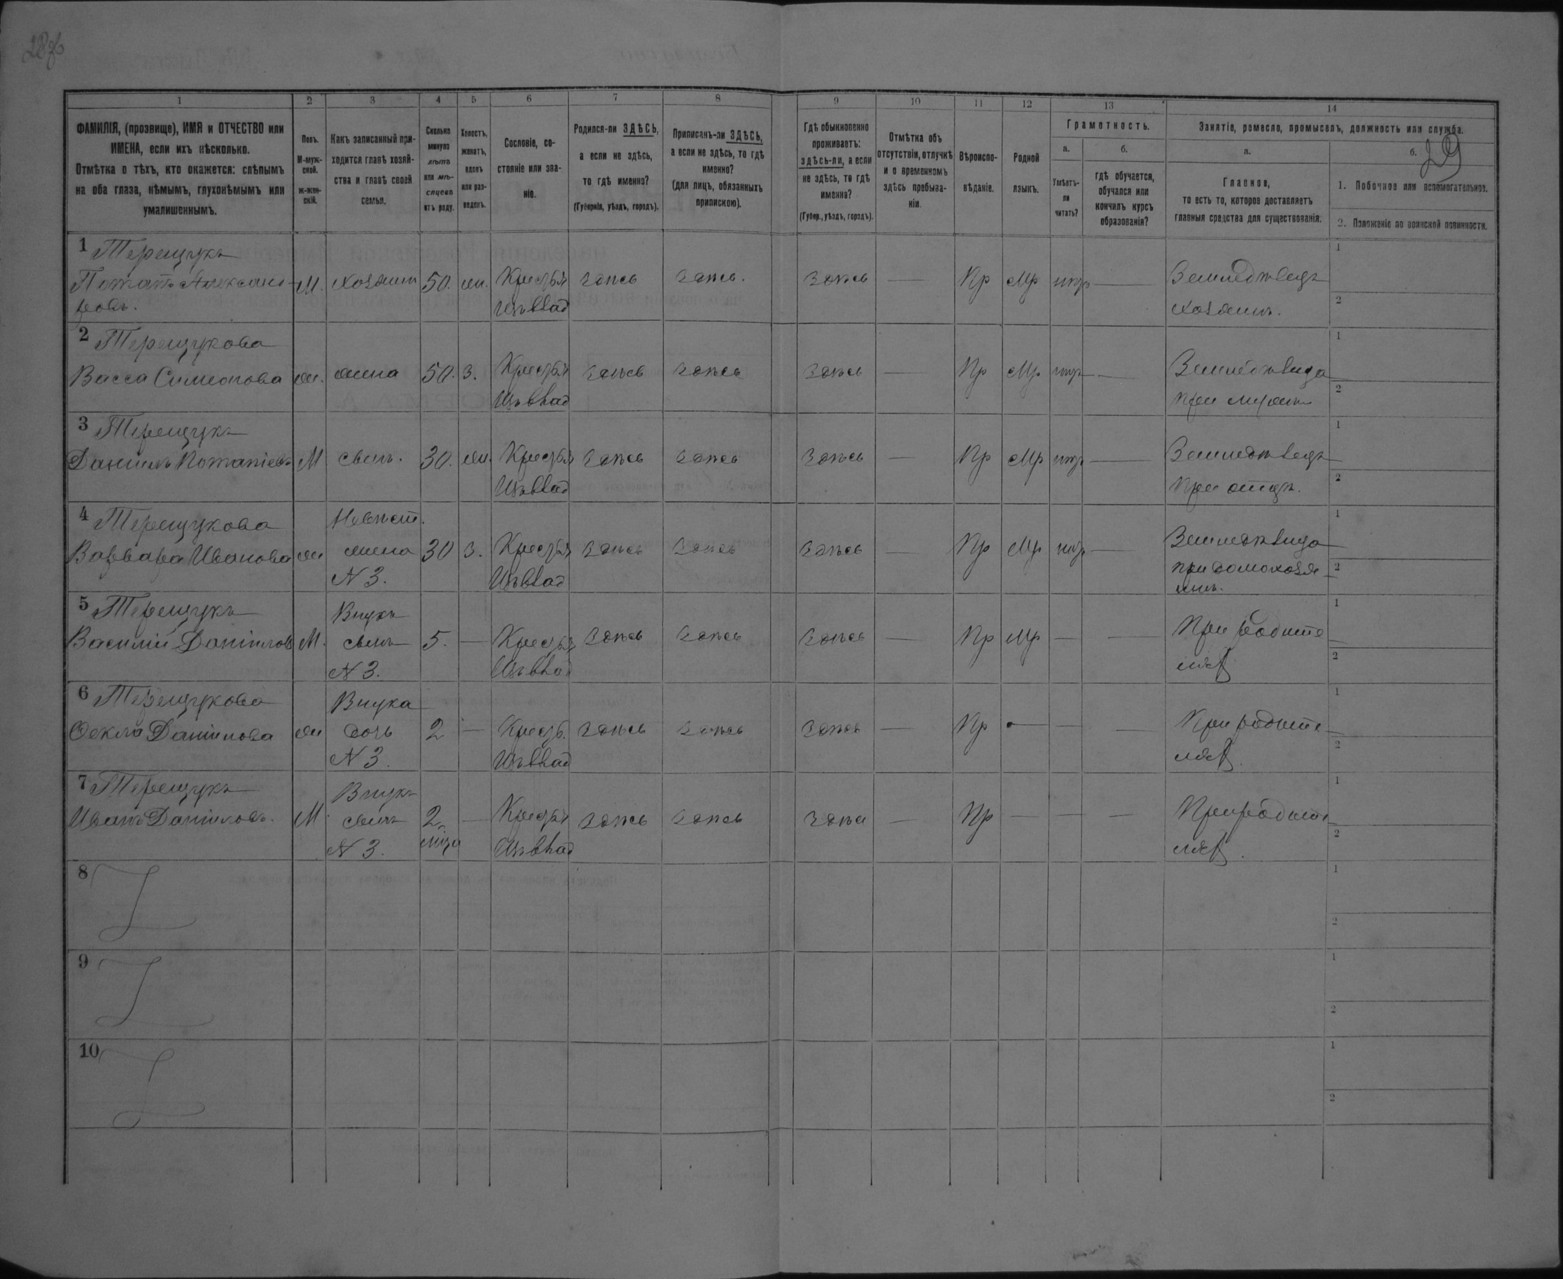 28об
29
1
2
3
4
5
6
7
8
9
10
11
12
13
14
ФАМИЛІЯ, (прозвище), ИМЯ и ОТЧЕСТВО или
ИМЕНА, если ихъ нѣсколько.
Отмѣтка о тѣхъ, кто окажется: слѣпымъ
на оба глаза, нѣмымъ, глухонѣмымъ или
умалишеннымъ.
Полъ.
М-муж-
ской.
ж-жен-
скій.
Какъ записанный при-
ходится главѣ хозяй-
ства и главѣ своей
семьи.
Сколько
минуло
лѣтъ
или мѣ-
сяцевъ
отъ роду.
Холостъ,
женатъ,
вдовъ
или раз-
веденъ.
Сословіе, со-
стояніе или зва-
ніе.
Родился-ли ЗДѢСЬ,
а если не здѣсь,
то гдѣ именно?
(Губернія, уѣздъ, городъ).
Приписанъ-ли ЗДѢСЬ,
а если не здѣсь, то гдѣ
именно?
(для лицъ, обязанныхъ
припискою).
Гдѣ обыкновенно
проживаетъ:
здѣсь-ли, а если
не здѣсь, то гдѣ
именно?
(Губер., уѣздъ, городъ).
Отмѣтка объ
отсутствіи, отлучкѣ
и о временномъ
здѣсь пребыва-
ніи.
Вѣроиспо-
вѣданіе.
Родной
языкъ.
Грамотность.
а.
б.
Умѣетъ-
ли
читать?
гдѣ обучается,
обучался или
кончилъ курсъ
образованія?
Занятіе, ремесло, промыселъ, должность или служба.
а.
б.
Главное,
то есть то, которое доставляетъ
главныя средства для существованія.
1. Побочное или вспомогательное.
2. Положеніе по воинской повинности.
1 Терещукъ
Потапъ Александ-
ровъ.
М. хозяинъ 50. жн. Крестьян здѣсь здѣсь. здѣсь — Пр Мр нѣтъ — Земледѣлецъ
хозяинъ.
1
2
2 Терещукова
Васса Симеонова ж. жена 50. з. Крестьян здѣсь здѣсь здѣсь — Пр Мр нѣтъ — Земледѣлица
при мужѣ
1
2
3 Терещукъ
Даниилъ М сынъ. 30. жн. Крестьян здѣсь здѣсь здѣсь — Пр Мр нѣтъ — Земледѣлецъ
при отцѣ.
1
2
4 Терещукова Невѣст.
Варвара Иванова ж жена 30 з. Крестьян здѣсь здѣсь здѣсь — Пр Мр нѣтъ — Земледѣлица
N 3. при домохозя
инѣ.
1
2
5 Терещукъ Внукъ
Василій Даниловъ М. сынъ 5. — Крестьян здѣсь здѣсь здѣсь — Пр Мр — — При родите
N 3. ляхъ
1
2
6 Терещукова Внука
Ѳекла Данилова ж дочь 2 — Крестьян. здѣсь здѣсь здѣсь — Пр — — — При родите
N 3. ляхъ.
1
2
7 Терещукъ Внукъ
Иванъ Даниловъ. М. сынъ 2 — Крестьян здѣсь здѣсь здѣсь — Пр — — — При родите
N 3. мѣс. ляхъ.
1
2
8
1
2
9
1
2
10
1
2